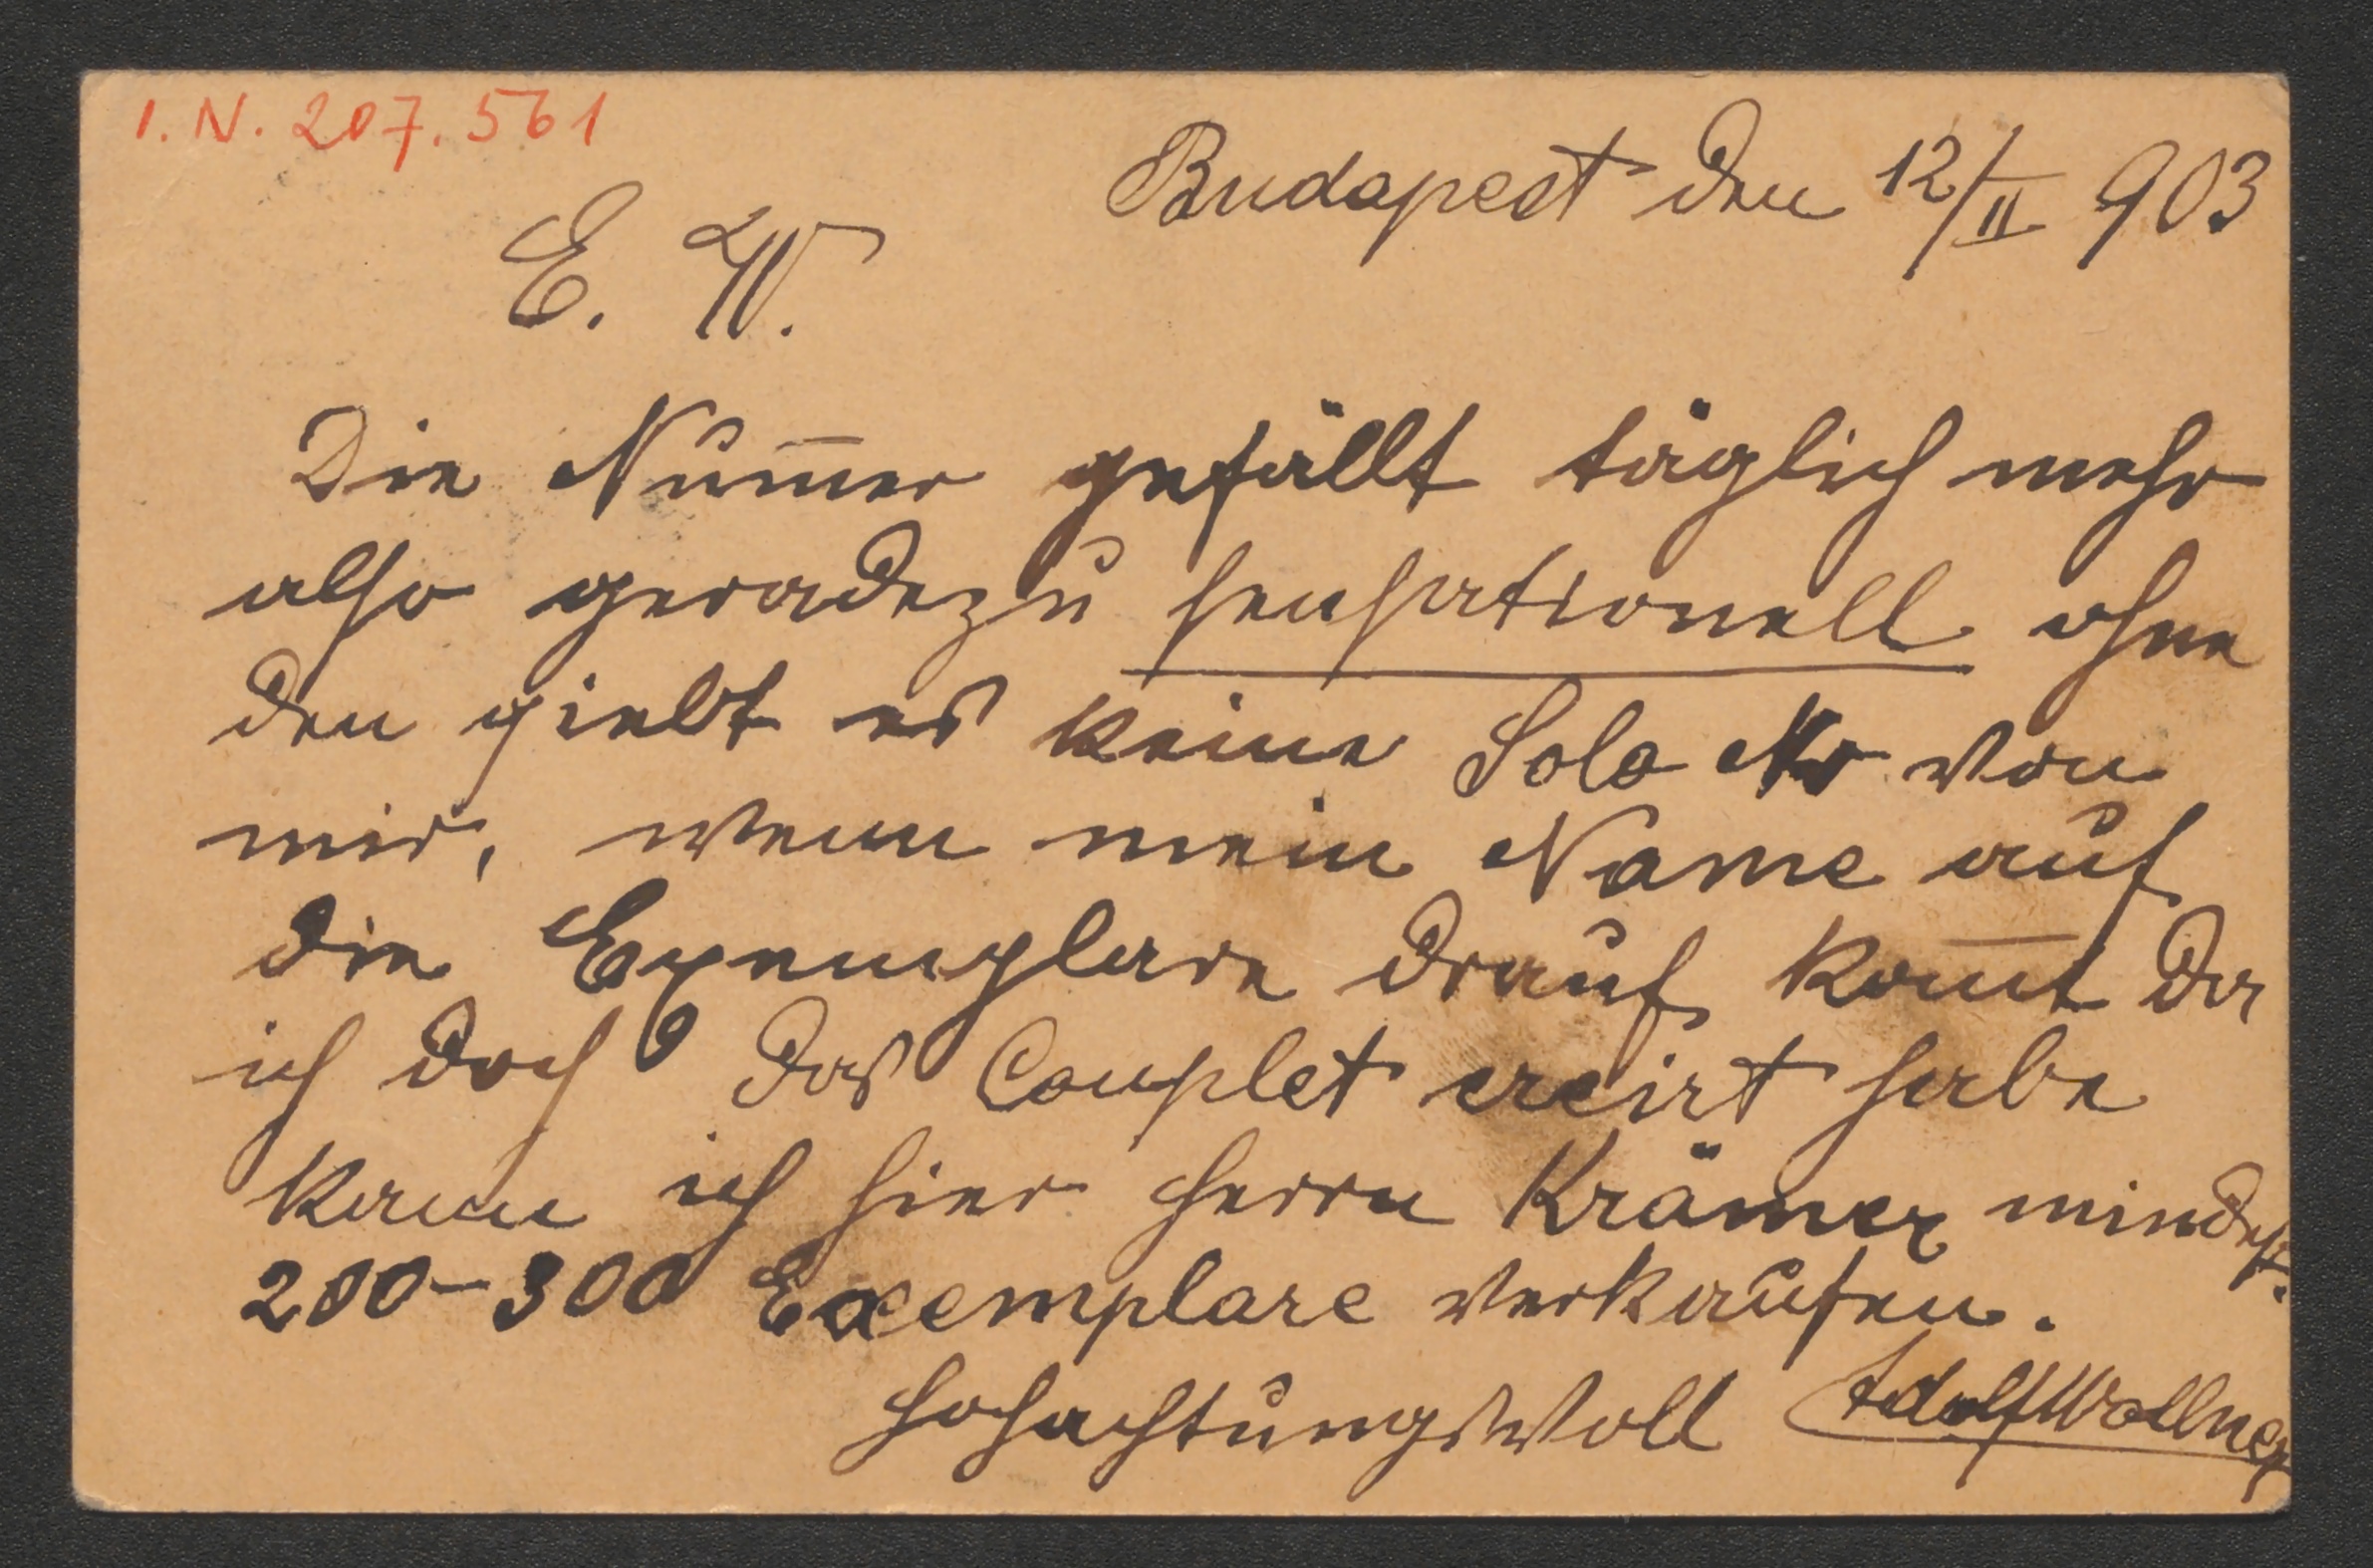 I.N. 207.561
Budapest den 12/II 903
E. W.
Die Num̅er gefällt täglich mehr
also geradezu sensationell ohne
den giebt es keine Solo No von
mir, wenn mein Name auf
die Exemplare drauf kom̅t da
ich doch das Couplet creirt habe
kann ich hier Herrn Krämer mindest.
200-300 Exemplare verkaufen.
Hochachtungsvoll Adolf Wallner